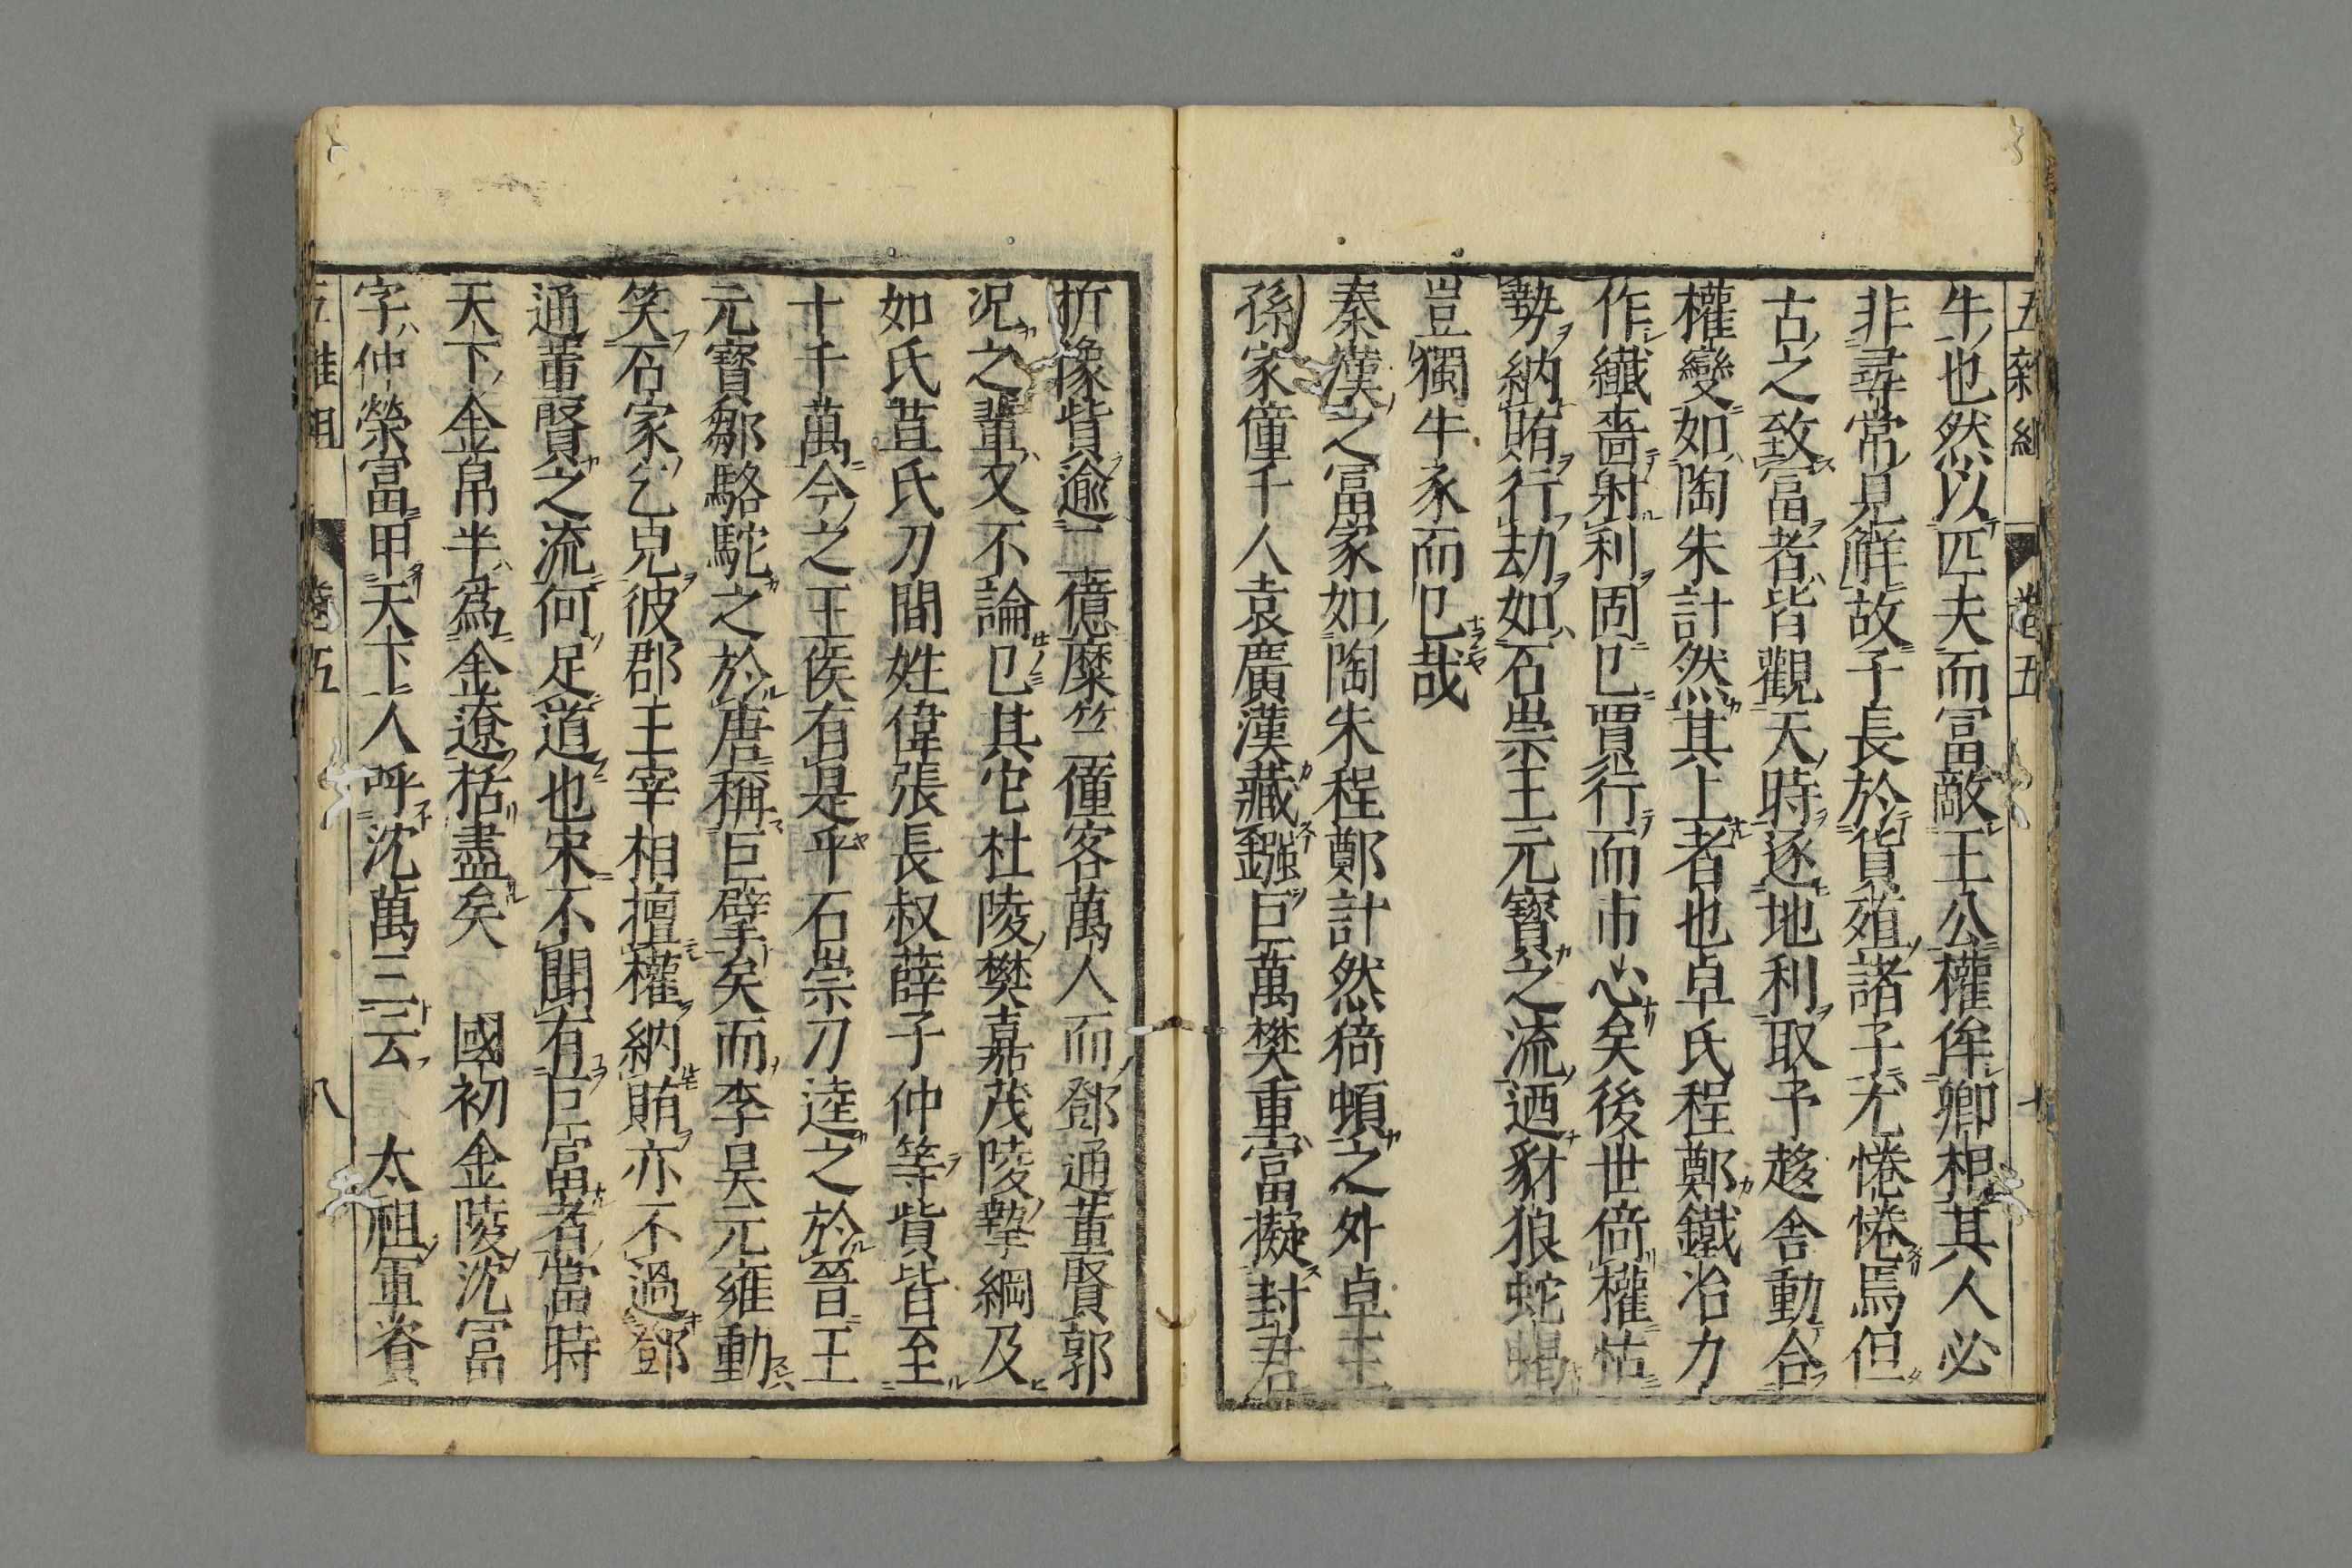 五雜俎 卷五
牛也然以匹夫而冨敵王公權侔卿相其人必
非尋常見解故子長於貨殖諸子尤惓惓焉但
古之致富者皆觀天時逐地利取予趍舍動合
權變如陶朱計然其上者也卓氏程鄭鐵冶力
作纖嗇射利固已賈行而市心矣後世倚權怙
勢納賄行劫如石崇王元寳之流迺豺狼蛇蝎
豈獨牛豕而已哉
秦漢之富家如陶朱程鄭計然猗頓之外卓王
孫家僮千人袁廣漢藏鏹巨萬樊重富擬封君
折像貲逾二億糜竺僮客萬人而鄧通董賢郭
況之輩又不論已其它杜陵樊嘉茂陵摯綱及
如氏苴氏刀間姓偉張長叔薛子仲等貲皆至
十千萬今之王侯有是乎石崇刀逵之於晉王
元寳鄒駱駝之於唐稱巨擘矣而李昊元雍動
笑石家乞兒彼郡王宰相擅權納賄亦不過鄧
通董賢之流何足道也宋不聞有巨富者當時
天下金帛半為金遼括盡矣 國初金陵沈富
字仲榮富甲天下人呼沈萬三云 太祖軍資
五雜俎 卷五 八